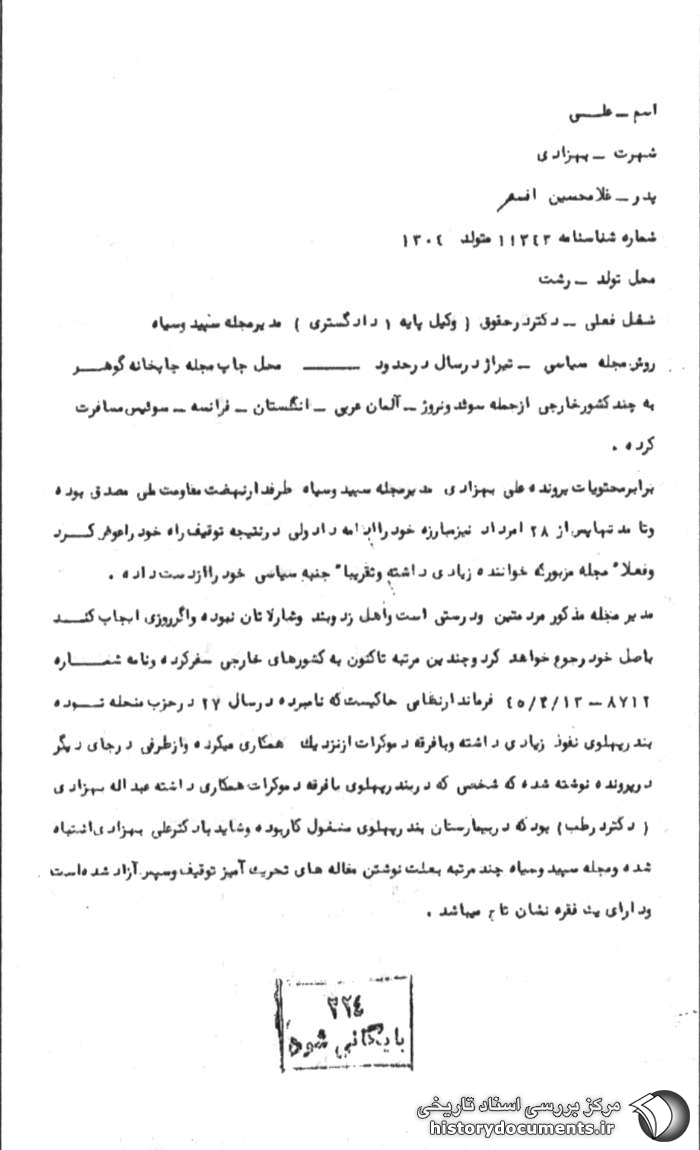 اسم ـ علـــی
شهرت ـ بهزادی
پدر ـ غلامحسین افسر
شماره شناسنامه ۱۱۳۴۳ متولد ۱۳۰۴
محل تولد ـ رشت
شغل فعلی ـ دکتردرحقوق ( وکیل پایه ۱ دادگستری ) مدیرمجله سپید وسیاه
روش مجله سیاسی ـ تیراژ درسال درحدود ــــــــ محل چاپ مجله چاپخانه گوهـــر
به چند کشورخارجی ازجمله سوئدونروژ ـ آلمان غربی ـ انگلستان ـ فرانسه ـ سوئیس مسافرت
کرده .
برابرمحتویات پرونده علی بهزادی مدیرمجله سپید وسیاه طرفدارنهضت مقاومت ملی مصدق بوده
وتا مدتهاپس از ۲۸ امرداد نیزمبارزه خودراادامه دادولی درنتیجه توقیف راه خودراعوض کــرد
وفعلاً مجله مزبورکه خواننده زیادی داشته وتقریباً جنبه سیاسی خودراازدست داده .
مدیر مجله مذکور مردمتین ودرستی است واهل زدوبند وشارلاتان نبوده واگرروزی ایجاب کنــد
باصل خودرجوع خواهد کردوچندین مرتبه تاکنون به کشورهای خارجی سفرکرده ونامه شمـــاره
۸۷۱۲ ـ ۴۵/۴/۱۳ فرماندارنظامی حاکیست که نامبرده درسال ۲۷ درحزب منحله تــوده
بندرپهلوی نفوذ زیادی داشته وبافرقه دموکرات ازنزدیك همکاری میکرده وازطرفی درجای دیگر
درپرونده نوشته شده که شخصی که دربندرپهلوی بافرقه دموکرات همکاری داشته عبداله بهزادی
( دکتردرطب ) بودکه دربیمارستان بندرپهلوی مشغول کاربوده وشاید بادکترعلی بهزادی اشتباه
شده ومجله سپید وسیاه چند مرتبه بعلت نوشتن مقاله های تحریك آمیز توقیف وسپس آزاد شده است
ودارای یك فقره نشان تاج میباشد .
۲۲۴
بایگانی شود
مرکز بررسی اسناد تاریخی
historydocuments.ir